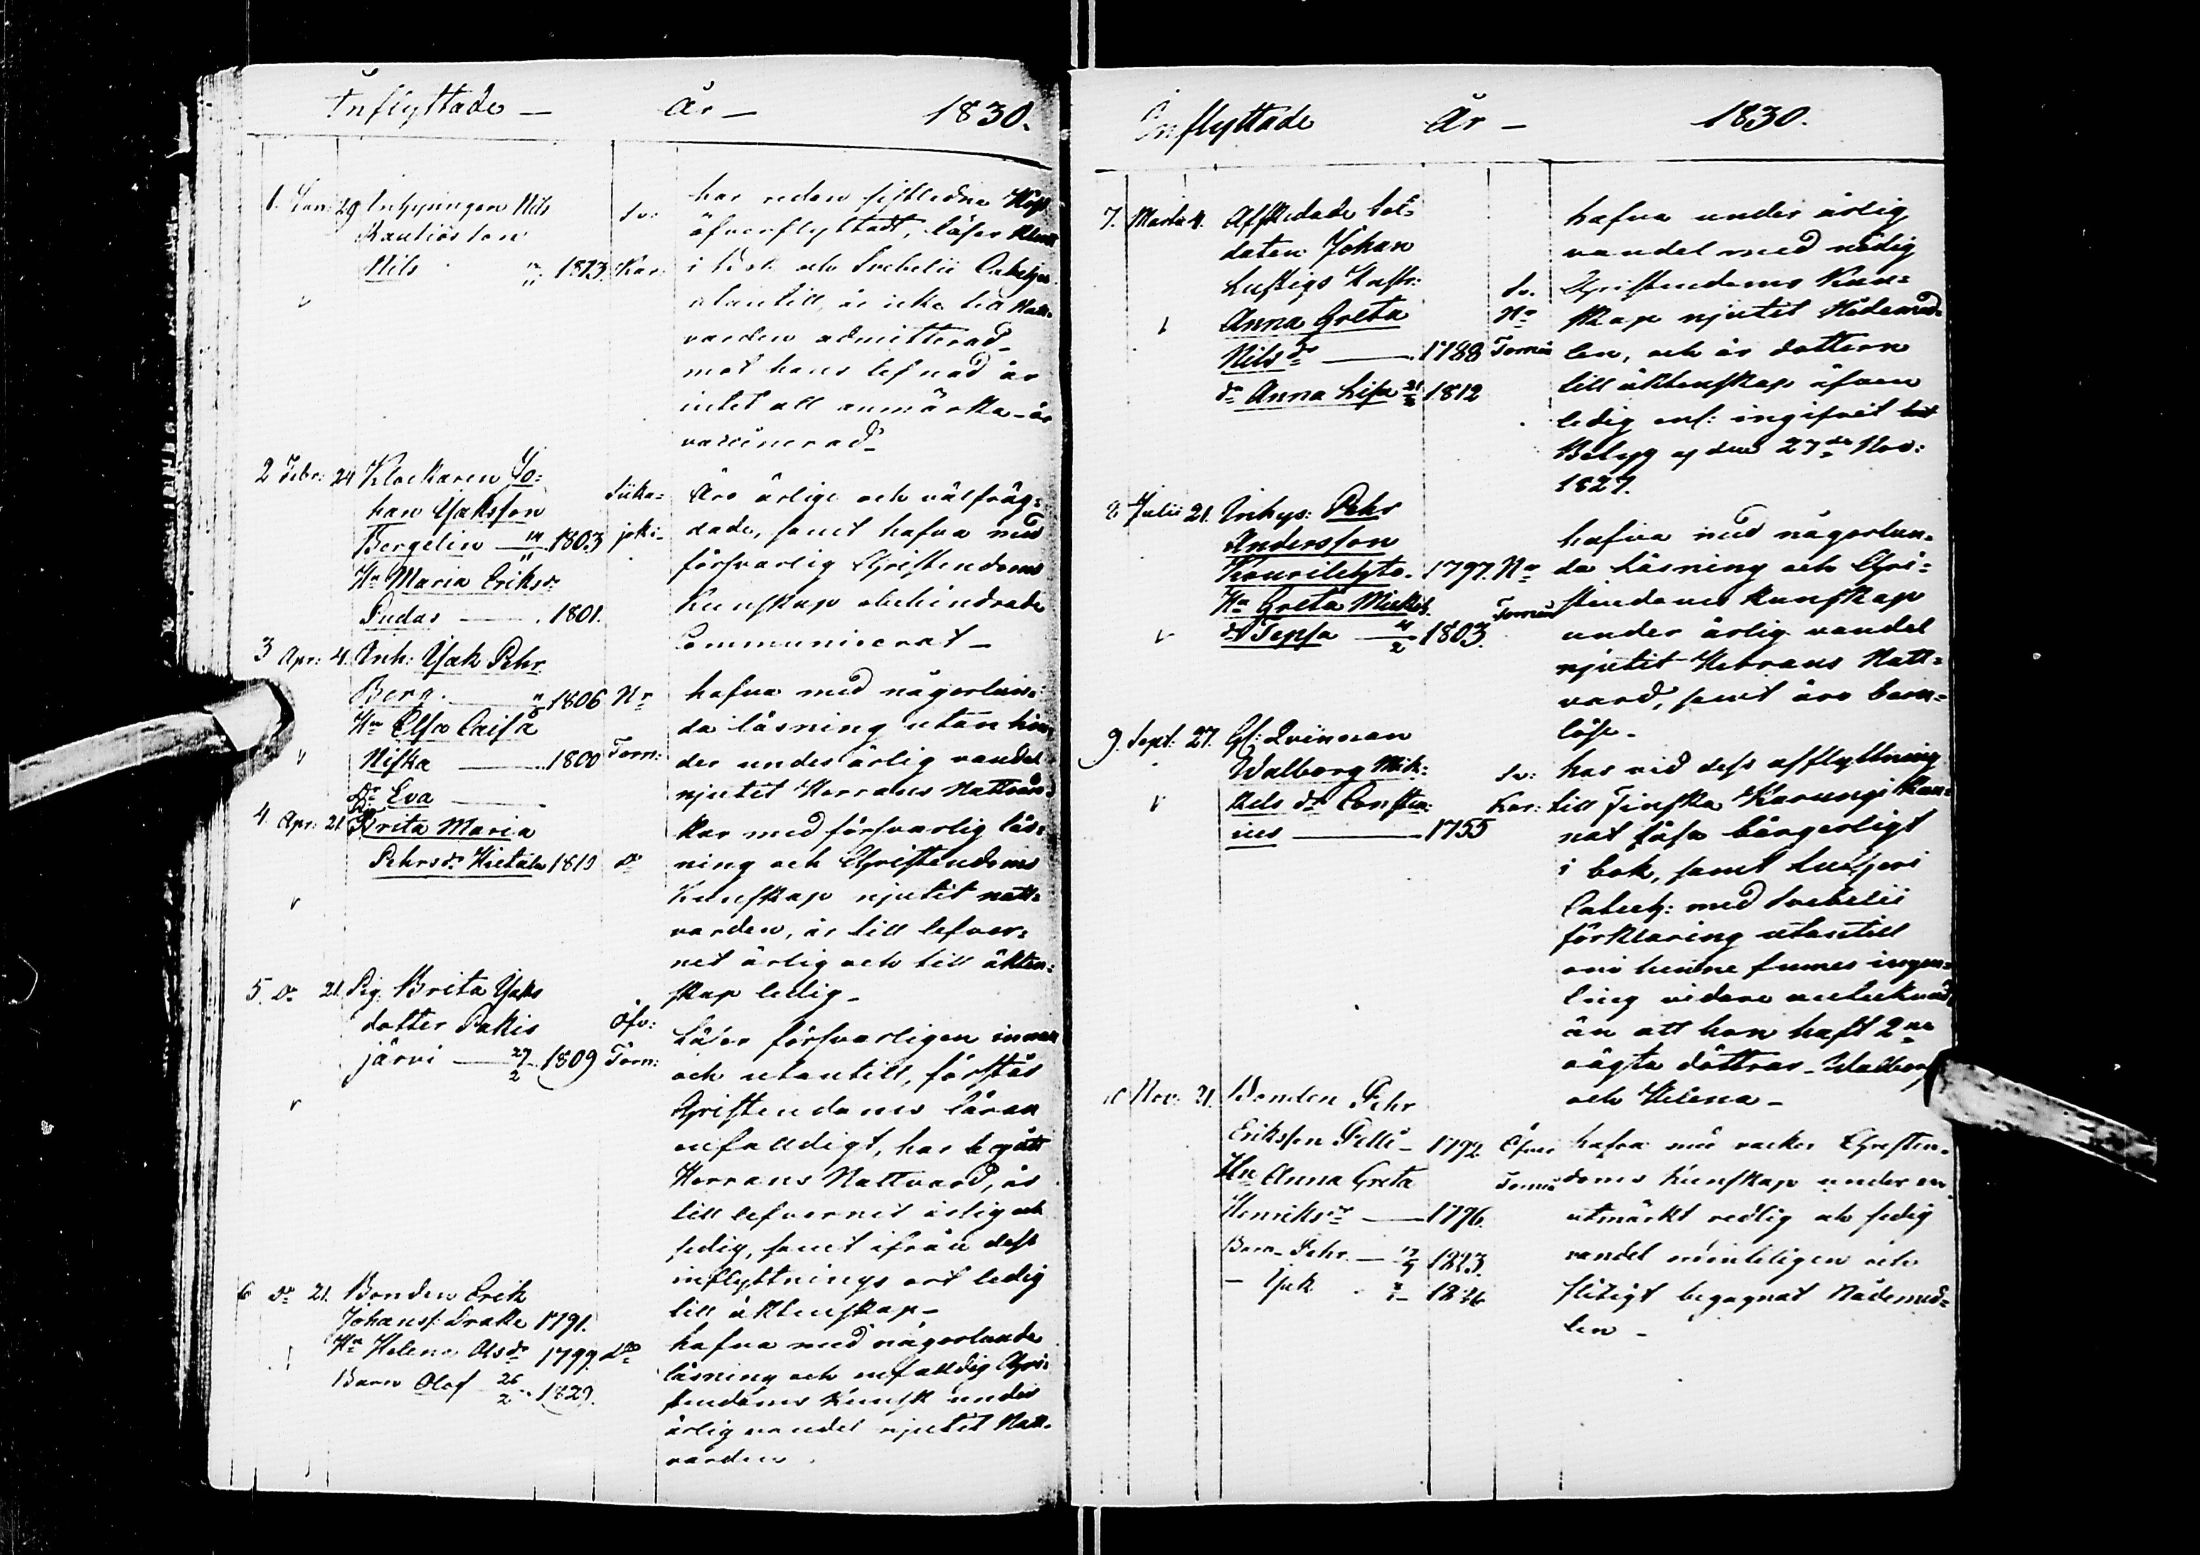 Inflyttade — År — 1830.
1. Jan: 29 Inhysingen Nils
Rautios son
Nils 1813.
Sv:
Kar:
har redan sistledna Höst
öfverflyttadt, läser
i Bok och Svebelii Cateches
utantill, är icke till Natt-
varden admitterad_
mot hans lefnad är
intet att anmärka_ är
vaccinerad_
2 Febr: 24 Klockaren Jo=
han Jaksson
Bergelin 1803
Hu Maria Eriksdr
Pudas — 1801.
Siika=
joki_
Äro ärlige och välfräg=
dade, samt hafva med
försvarlig Christendoms
Kunskap obehindrade
Communicerat _
3 Apr: 4. Inh: Jak Pehr
Berg. 1806 Nr
Hu Elsa Caisa
Niska — 1800 Torn:
dr Eva —
hafva med någorlun=
da läsning utan hin
der under ärlig vandel
njutit Herrans Nattvard
4. Apr: 21. Brita Maria
Pehrsdr Hietala 1810 do
har med försvarlig läs=
ning och Christendoms
Kunskap njutit natt=
varden, är till lefver=
net ärlig och till äkten=
skap ledig_
5. Do 21. Pig. Brita Jaks
dotter Pakis
järvi — 27/2 1809
Öfv:
Torn:
Läser försvarligen innan
och utantill, förstår
Christendoms läran
enfaldigt, har begått
Herrans Nattvard, är
till lefvernet ärlig och
sedig, samt ifrån dess
inflyttnings ort ledig
till äktenskap_
6 do 21. Bonden Erik
Johanss: Drake 1791.
Hu Helena Olsdr 1799. do
Barn Olof 26/2 1829.
hafva med någorlunda
läsning och enfaldig Chri=
stendoms Kunsk under
ärlig vandel njutit Natt=
varden.
Inflyttade År — 1830.
7. Martii 4. Afskedade Sol=
daten Johan
Lustigs Hustr:
Anna Greta
Nilsdr — 1788
dr Anna Lisa 1812
Sv.
Nr
Torneå
hafva under ärlig
vandel med nödig
Christendoms Kun=
skap njutit Nådemed=
len, och är dottern
till äktenskap äfven
ledig enl: ingifvit
Betyg af den 27de Nov:
1827.
8 Julii 21. Inhys: Pehr
Andersson
Kourilehto. 1797. Nr
Hu Greta Mickels
dr Seppa — 1803.
Torneå
hafva med någorlun=
da Läsning och Chri=
stendoms kunskap
under ärlig vandel
njutit Herrans Natt=
vard, samt äro barn=
löse_
9. Sept: 27. Gl: Qvinnan
Walborg Mik=
kels dr Consten:
ius — 1755
Sv:
Kar:
har vid dess afflyttning
till Finska Karungi Kun=
nat läsa bårgerligt
i bok, samt Lutheri
Catech: med Svebelii
förklaring utantill
om henne finnes ingen=
ting vidare antecknad,
än att hon haft 2ne
oägta döttrar_ Walborg
och Helena_
10 Nov: 21. Bonden Pehr
Eriksson Pelli_ 1792.
Hu Anna Greta
Henriksdr — 1796.
Barn_ Pehr — 1823.
— Jak 1826
Öfver
Torneå
hafva med vacker Christen=
doms Kunskap under en
utmärkt redlig och sedig
vandel
flitigt begagnat Nådemed=
len _